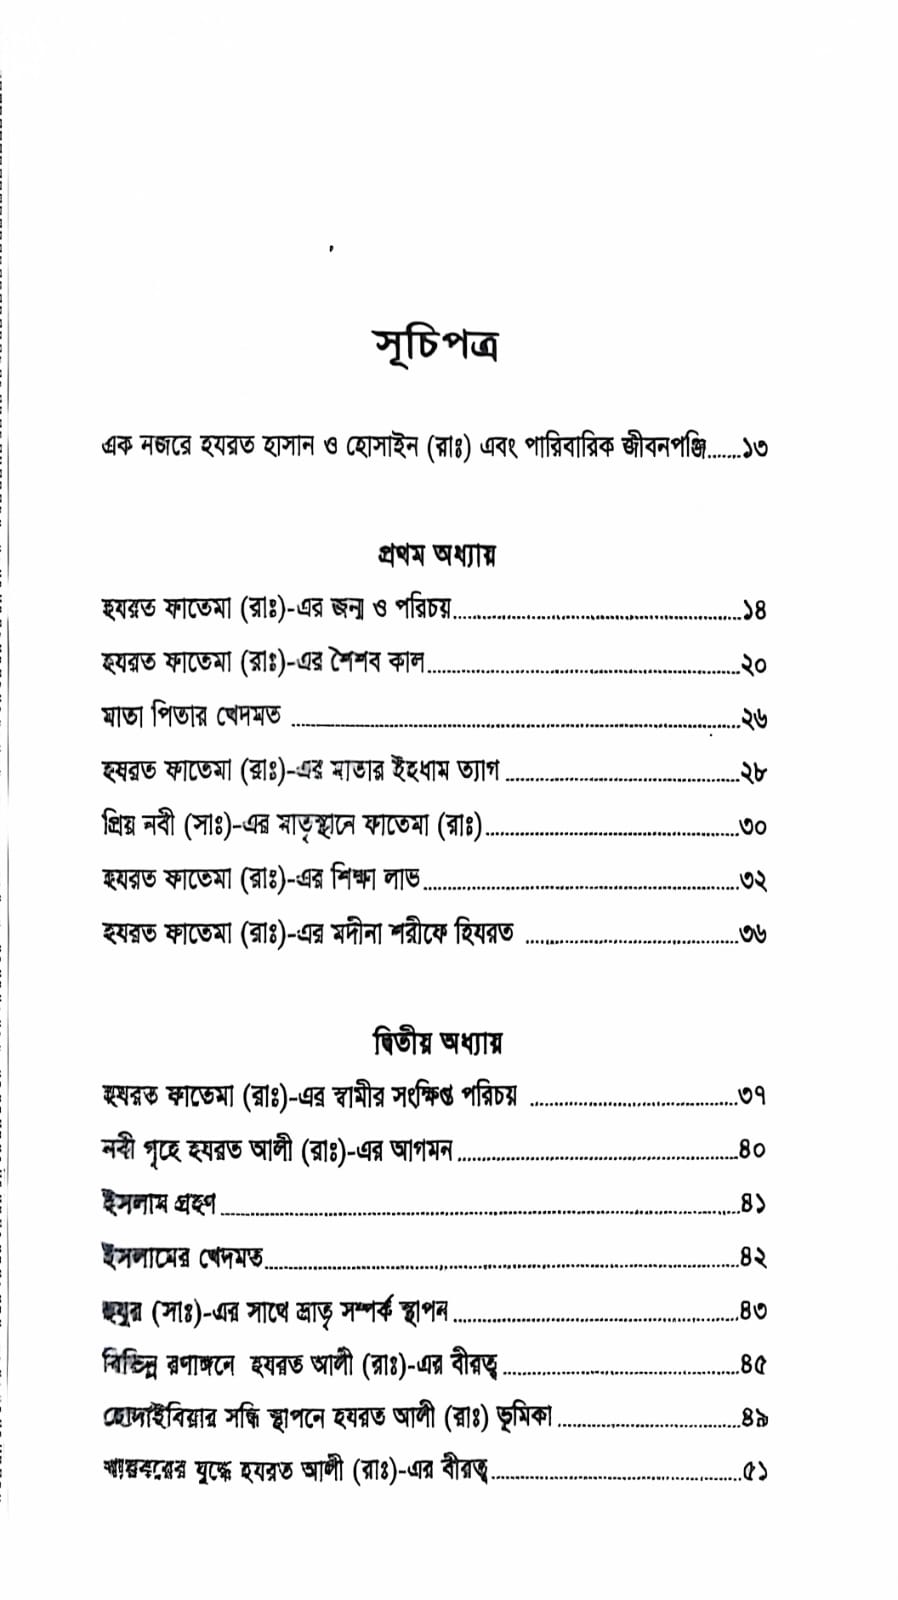 সূচিপত্র
এক নজরে হযরত হাসান ও হোসাইন (রাঃ) এবং পারিবারিক জীবনপঞ্জি.......১৩
প্রথম অধ্যায়
হযরত ফাতেমা (রাঃ)-এর জন্ম ও পরিচয়..........................................................১৪
হযরত ফাতেমা (রাঃ)-এর শৈশব কাল...............................................................২০
মাতা পিতার খেদমত ..........................................................................................২৬
হযরত ফাতেমা (রাঃ)-এর মাতার ইহধাম ত্যাগ ...............................................২৮
প্রিয় নবী (সাঃ)-এর মাতৃস্থানে ফাতেমা (রাঃ)...................................................৩০
হযরত ফাতেমা (রাঃ)-এর শিক্ষা লাভ...............................................................৩২
হযরত ফাতেমা (রাঃ)-এর মদীনা শরীফে হিযরত ...........................................৩৬
দ্বিতীয় অধ্যায়
হযরত ফাতেমা (রাঃ)-এর স্বামীর সংক্ষিপ্ত পরিচয় ..........................................৩৭
নবী গৃহে হযরত আলী (রাঃ)-এর আগমন.........................................................৪০
ইসলাম গ্রহণ ........................................................................................................৪১
ইসলামের খেদমত...............................................................................................৪২
হুযুর (সাঃ)-এর সাথে ভ্রাতৃ সম্পর্ক স্থাপন .........................................................৪৩
বিভিন্ন রণাঙ্গনে হযরত আলী (রাঃ)-এর বীরত্ব ................................................৪৫
হোদাইবিয়ার সন্ধি স্থাপনে হযরত আলী (রাঃ) ভূমিকা .....................................৪৯
খায়বরের যুদ্ধে হযরত আলী (রাঃ)-এর বীরত্ব..................................................৫১